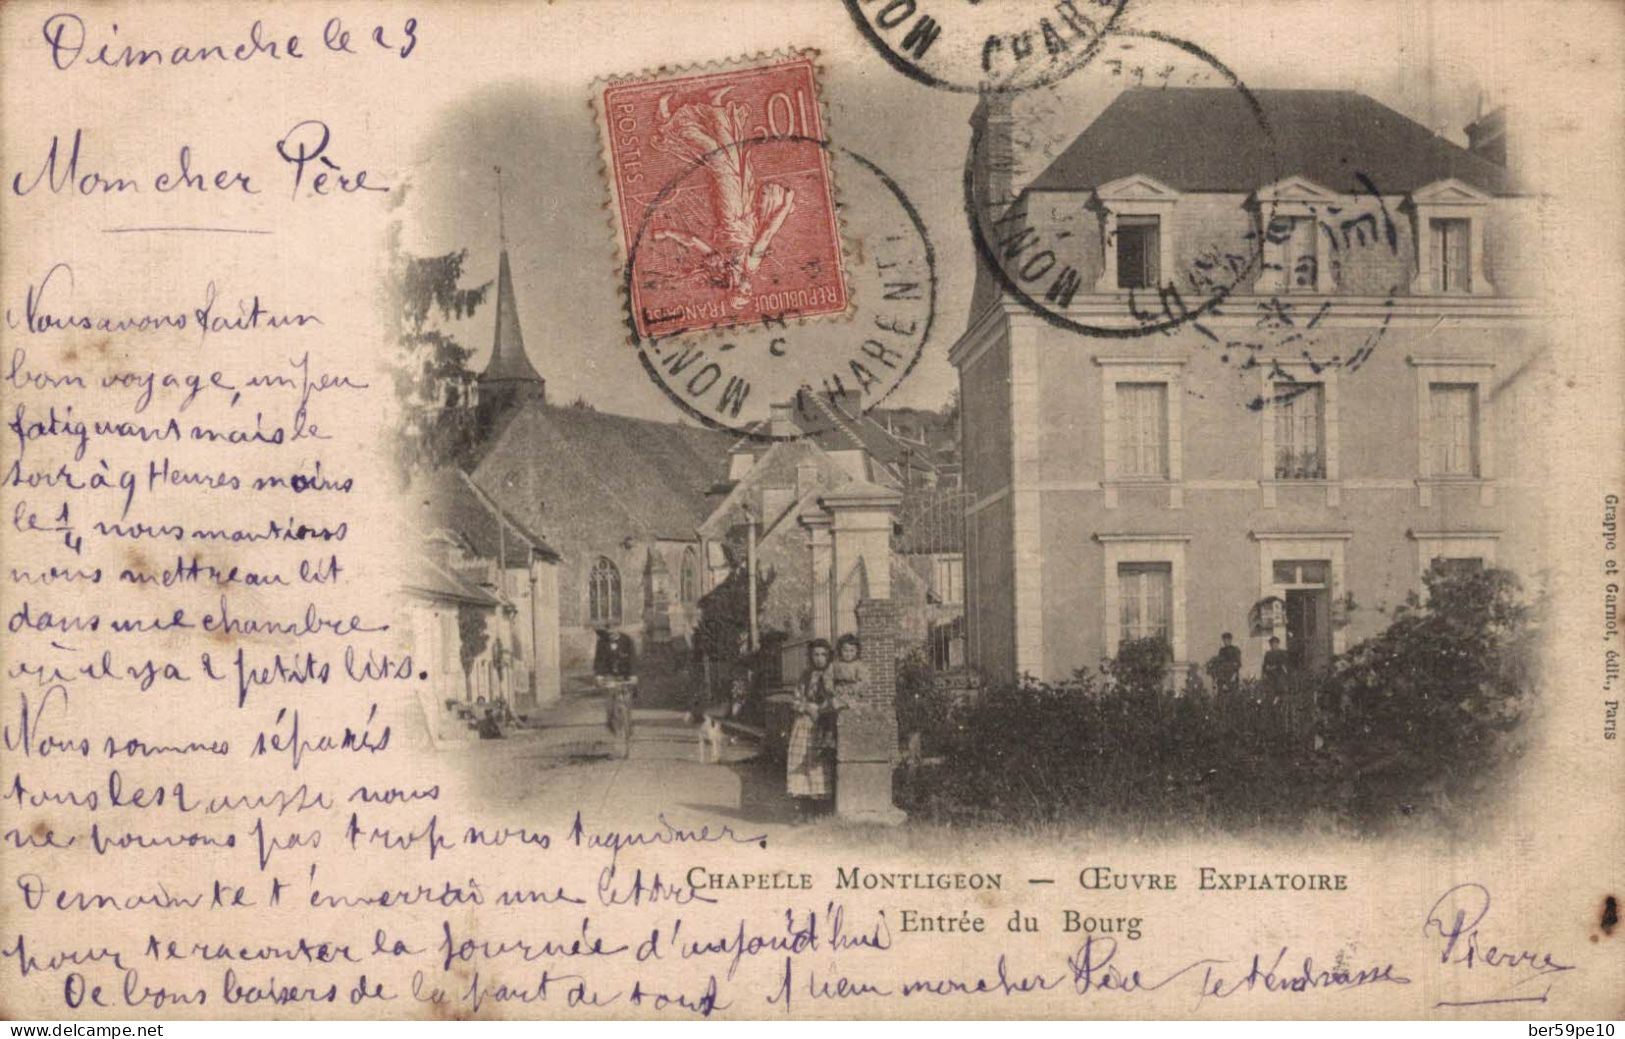 Dimanche le 23
Mon cher Père
Nous avons fait un
bon voyage, un peu
fatiguant mais le
soir à 9 Heures moins
le 1/4 nous montions
nous mettre au lit
dans une chambre
où il y a 2 petits lits.
Nous sommes séparés
tous les 2 aussi nous
ne pouvons pas trop nous taquiner.
Demain te t'enverrai une lettre
pour te raconter la journée d'aujourd'hui
De bons baisers de la part de tous
mon cher Père Je
Pierre
CHAPELLE MONTLIGEON — ŒUVRE EXPIATOIRE
Entrée du Bourg
Grappe et Garnot, édit., Paris
10c
POSTES
REPUBLIQUE FRANÇAISE
CHARENTE
MON
CHAR
MON
MON
delcampe.net
ber59pe10